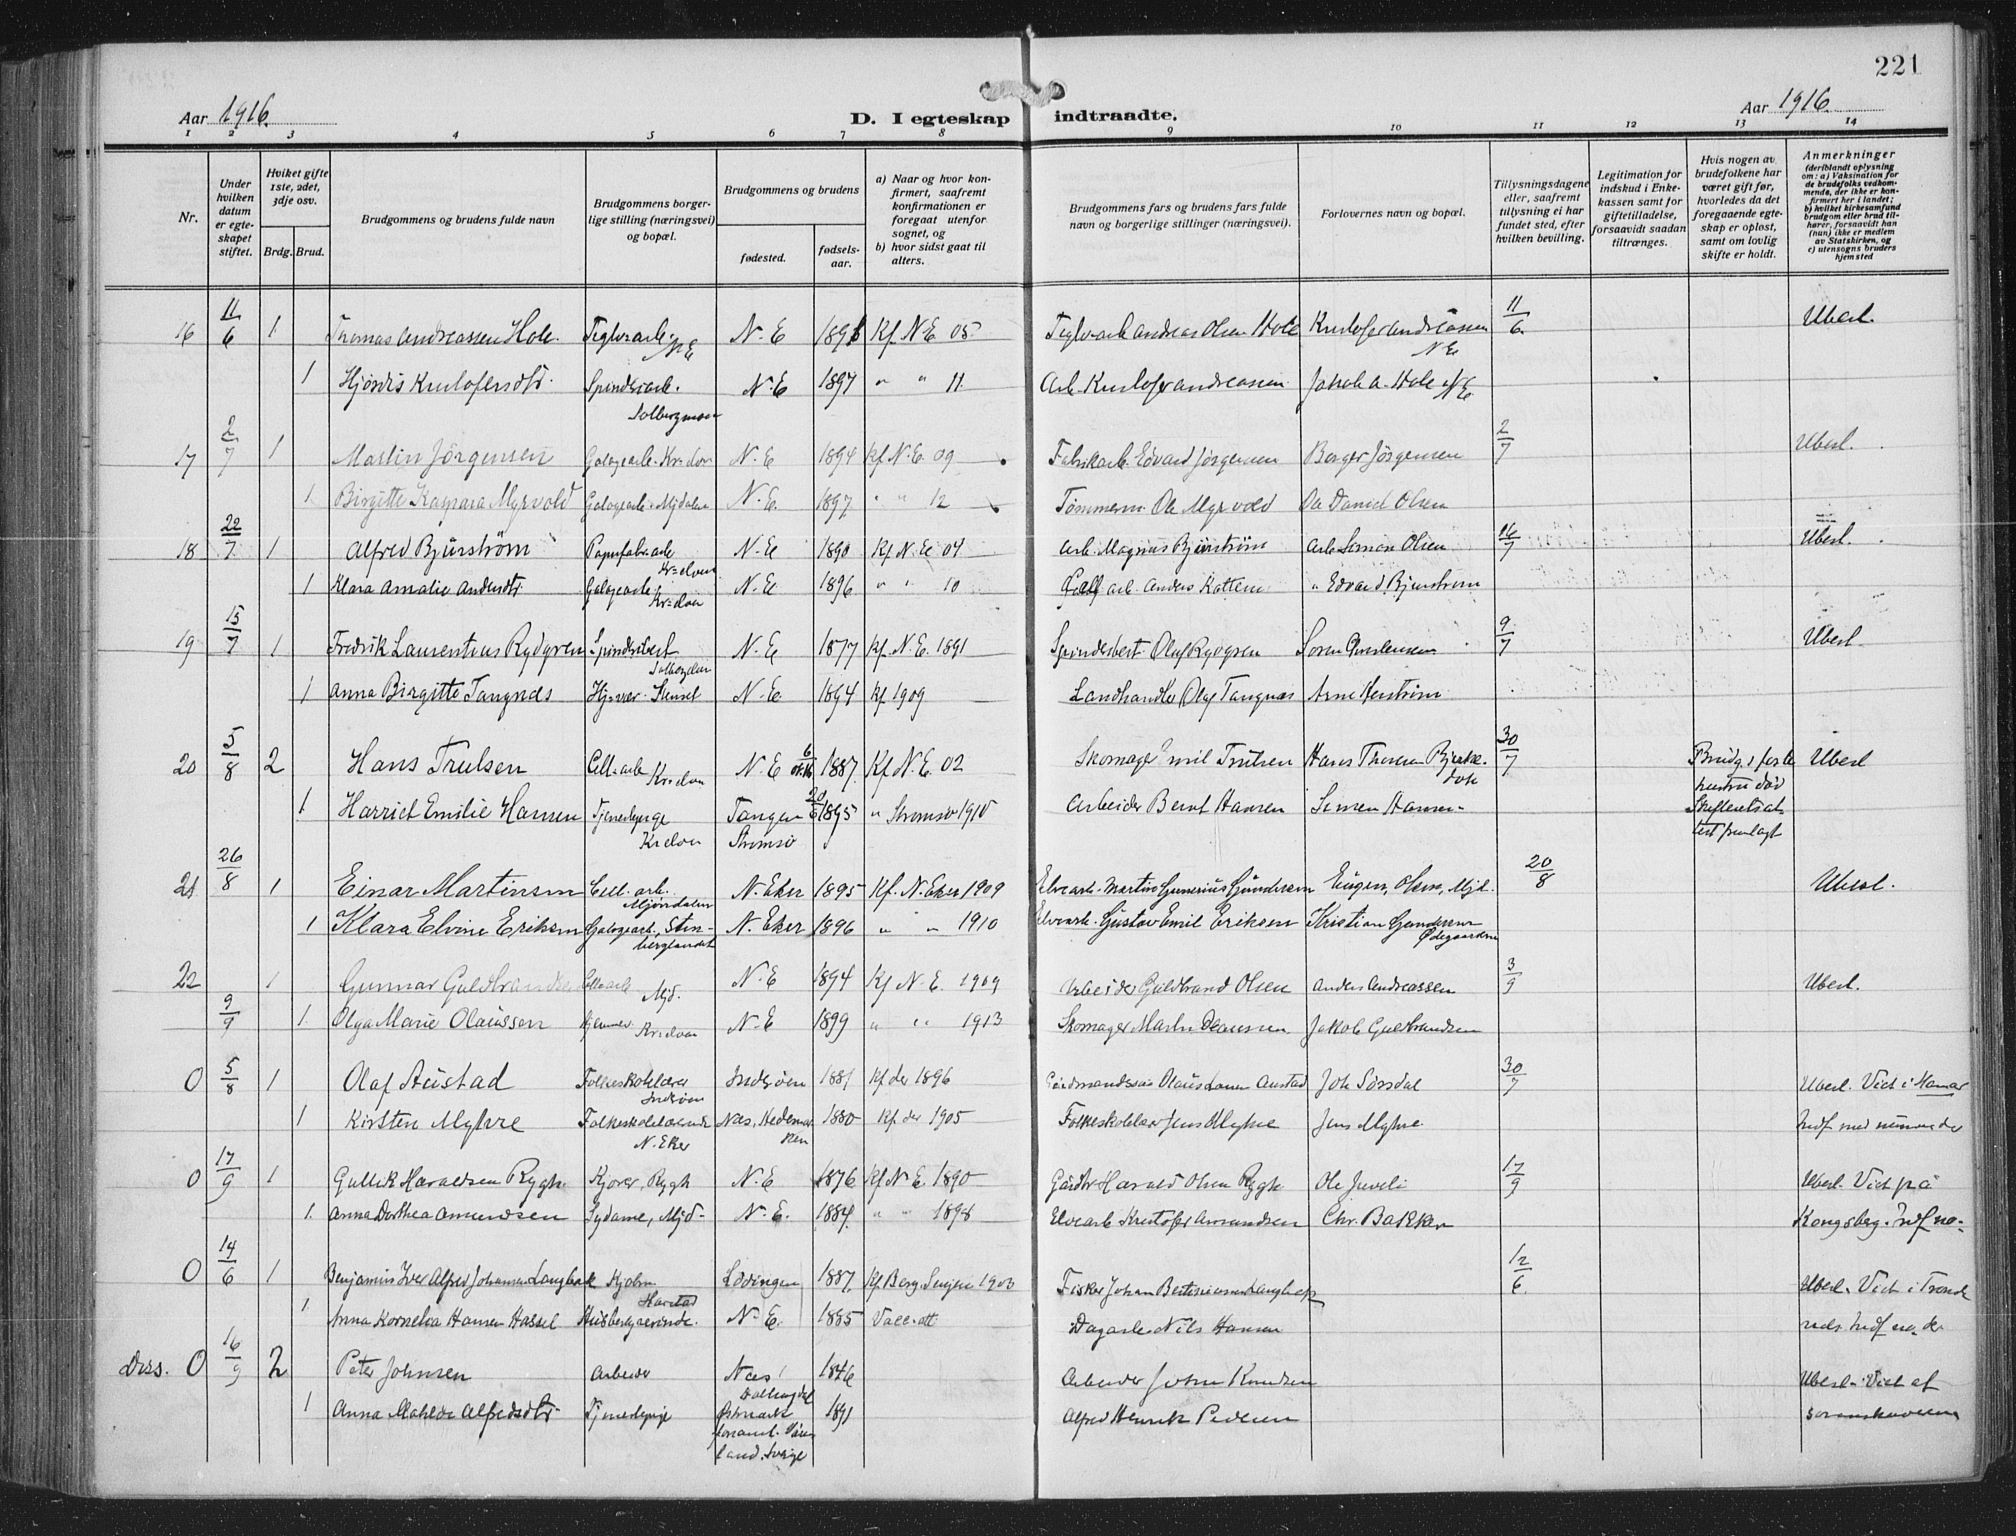 221
Aar 1916. D. I egteskap indtraadte. Aar 1916.
1 2 3 4 5 6 7 8 9 10 11 12 13 14
Nr.
Under hvilken datum er egteskapet stiftet.
Hvilket gifte 1ste, 2det, 3dje osv.
Brdg. Brud.
Brudgommens og brudens fulde navn
Brudgommens borgerlige stilling (næringsvei) og bopæl.
Brudgommens og brudens
fødested. fødselsaar.
a) Naar og hvor konfirmert, saafremt konfirmationen er foregaat utenfor sognet, og
b) hvor sidst gaat til alters.
Brudgommens fars og brudens fars fulde navn og borgerlige stillinger (næringsvei).
Forlovernes navn og bopæl.
Tillysningsdagene eller, saafremt tillysning ei har fundet sted, efter hvilken bevilling.
Legitimation for indskud i Enkekassen samt for giftetilladelse, forsaavidt saadan tiltrænges.
Hvis nogen av brudefolkene har været gift før, hvorledes da det foregaaende egteskap er opløst, samt om lovlig skifte er holdt.
Anmerkninger (deriblandt oplysning om: a) Vaksination for de brudefolks vedkommende, der ikke er konfirmert her i landet; b) hvilket kirkesamfund brudgom eller brud tilhører, forsaavidt han (hun) ikke er medlem av Statskirken, og c) utensogns bruders hjemsted
16 11/6 1 Thomas Andreassen Hole. Teglverkarb. N.E N.E 1891 Kf. N.E. 05 Teglverkarb Andreas Olsen Hole Kristofer Andreassen N.E 11/6 Ubesl.
1 Hjørdis Kristofersdtr. Spinderiarb. Solbergmoen N.E 1897 " " 11 Arb. Kristofer Andreassen Jakob A. Hole N.E
17 2/7 1 Martin Jörgensen Galogearb. Kr=elven N.E 1894 Kf. N.E. 09 Fabrikarb. Edvard Jörgensen Berger Jörgensen 2/7 Ubesl.
1 Birgitte Kaspara Myrvold Galogearb. Mjdalen N.E 1897 " " 12 Tømmerm. Ole Myrvold Ole Daniel Olsen
18 22/7 1 Alfred Bjurström Papirfabr.arb Kr=elven N.E 1890 Kf N.E 04 Arb. Magnus Bjurström Arb. Simon Olsen 16/7 Ubesl.
1 Klara Amalie Andersdtr Galogearb. Kr=elven N.E 1896 " " 10 Cell arb. Anders Kattem " Edvard Bjurström
19 15/7 1 Fredrik Laurentius Rydgren Spinderibest Solbergelven N.E 1877 Kf. N.E. 1891 Spinderibest. Olaf Rydgren Soren 9/7 Ubesl.
1 Anna Birgitte Tangnæs Hjevær. Stenset N.E 1894 Kf 1909 Landhandler Olaf Tangnæs Arne
20 5/8 2 Hans Trulsen Cell.arb Kr=elven N.E 1887 Kf. N.E. 02 Skomager Emil Trulsen Hans Thoresen 30/7 Brudg.s første hustru død Skifteretsattest fremlagt Ubesl
1 Harriet Emilie Hansen Tjenestepige Kr=elven Tangen Strømsø 1895 " Strømsø 1910 Arbeider Bernt Hansen Simen Hansen
21 26/8 1 Einar Martinsen Cell. arb. Mjøndalen N. Eker 1895 Kf. N. Eker 1909 Elvearb. Martin Gunerius Gundersen Eugen Olsen, Mjd. 20/8 Ubesl.
1 Klara Elvine Eriksen Galogearb. Stenberglandet N. Eker 1896 " " 1910 Elvearb. Gustav Emil Eriksen Kristian Gundersen Ødegaarden
22 1 Gunnar Guldbrandsen Cellearb Mjd. N.E 1894 Kf N.E. 1909 Arbeider Guldbrand Olsen Anders Andreassen 3/9 Ubesl.
9/9 1 Olga Marie Olaussen Hjemmev. Kr=elven N.E 1899 " " 1913 Skomager Martin Olaussen Jakob Guldbrandsen
0 5/8 1 Olaf Austad Folkeskolelærer Inderøen Inderøen 1881 Kf der 1896 Gårdmand Austad Joh. Sørsdal 30/7 Ubesl. Viet i Hamar
1 Kirsten Myhre Folkeskolelærerinde N. Eker Næs, Hedemarken 1880 Kf. der 1905 Folkeskolelær Jens Myhre Jens Myhre hdf med nummer der
0 17/9 1 Gullik Haraldsen Rygh. Kjører, Rygh N.E 1876 Kf N.E. 1890 Gårdbr Harald Olsen Rygh Ole Juveli 17/9 Ubesl. Viet på
1 Anna Dorthea Amundsen Sydame, Mjd- N.E. 1884 " " 1898 Elvearb Kristofer Amundsen Chr. Bakken Kongsberg. hdf no.
0 14/6 1 Benjamin Iver Alfred Johansen Langbak Kjøbm Harstad Lødingen 1887 Kf Berg, Senjen 1903 Fisker Johan Langbak 12/6 Ubesl. Viet i Trond
1 Anna Kornelia Hansen Hassel Husbestyrerinde. N.E. 1885 Vacc. att Dagarb. Nils Hansen hdf no. der
Diss. 0 16/9 2 Peter Johnsen Arbeider Næs i Hallingdal 1846 Arbeider John Knudsen Ubesl. Viet af
1 Anna Matilde Alfredsdtr Tjenestepige Östmark forsaml. Värmland. Sverige 1891 Alfred Henrik Pedersen sorenskriveren